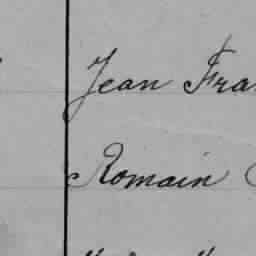 Jean Fra
Romain